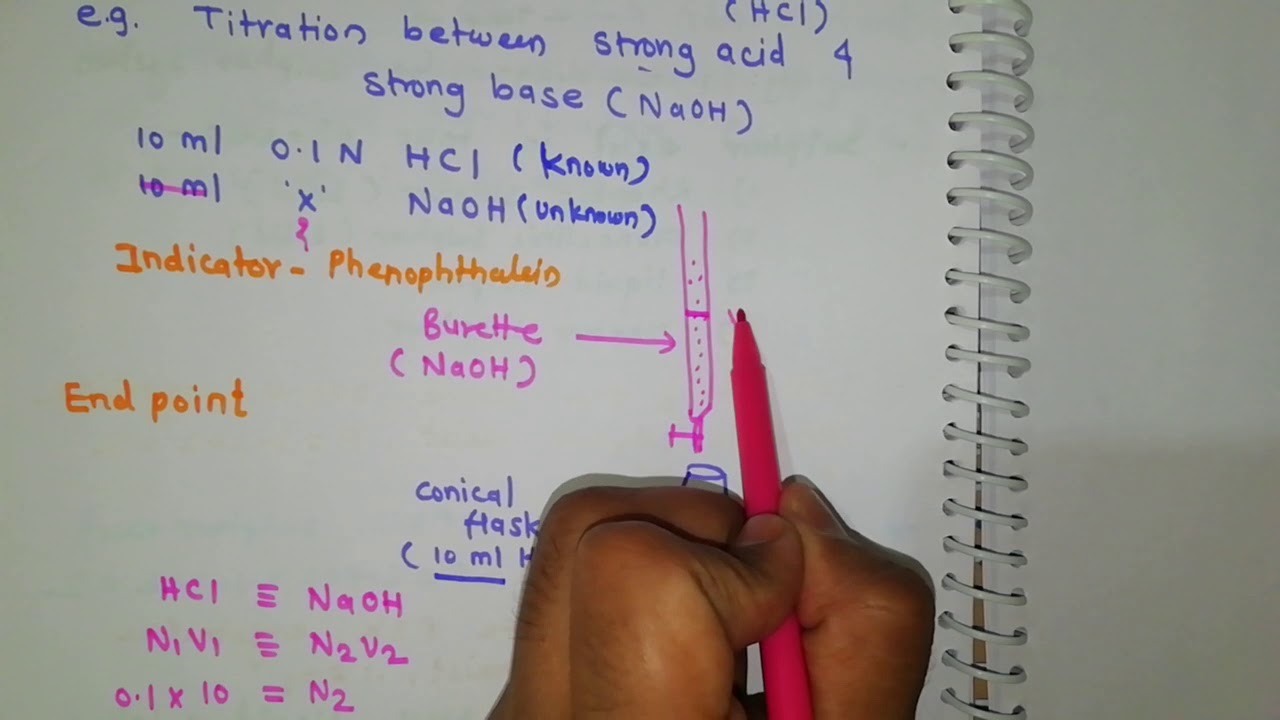 (HCl)
e.g. Titration between strong acid &
strong base (NaOH)
10 ml 0.1 N HCl (known)
10 ml 'x' NaOH (unknown)
Indicator - Phenophthalein
Burette
(NaOH)
End point
conical
flask
(10 ml H
HCl ≡ NaOH
N1V1 ≡ N2V2
0.1 x 10 = N2